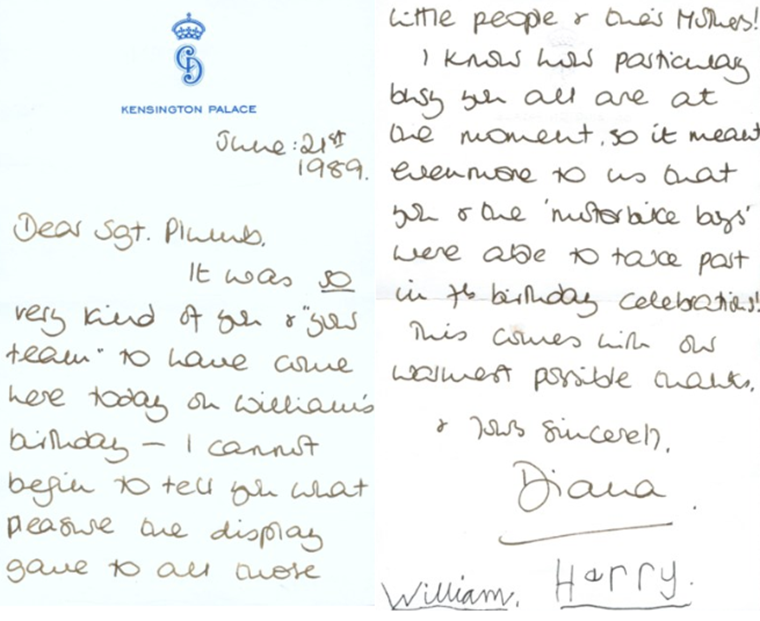 KENSINGTON PALACE
June: 21st
1989.
Dear Sgt. Plumb,
It was so
very kind of you & "your
team" to have come
here today on William's
birthday – I cannot
begin to tell you what
pleasure the display
gave to all those
little people & their Mothers!
I know how particulary
busy you all are at
the moment, so it meant
even more to us that
you & the 'motorbike boys'
were able to take part
in 7th birthday celebrations!
This comes with our
warmest possible thanks,
& Yours Sincerely,
Diana.
William. Harry.